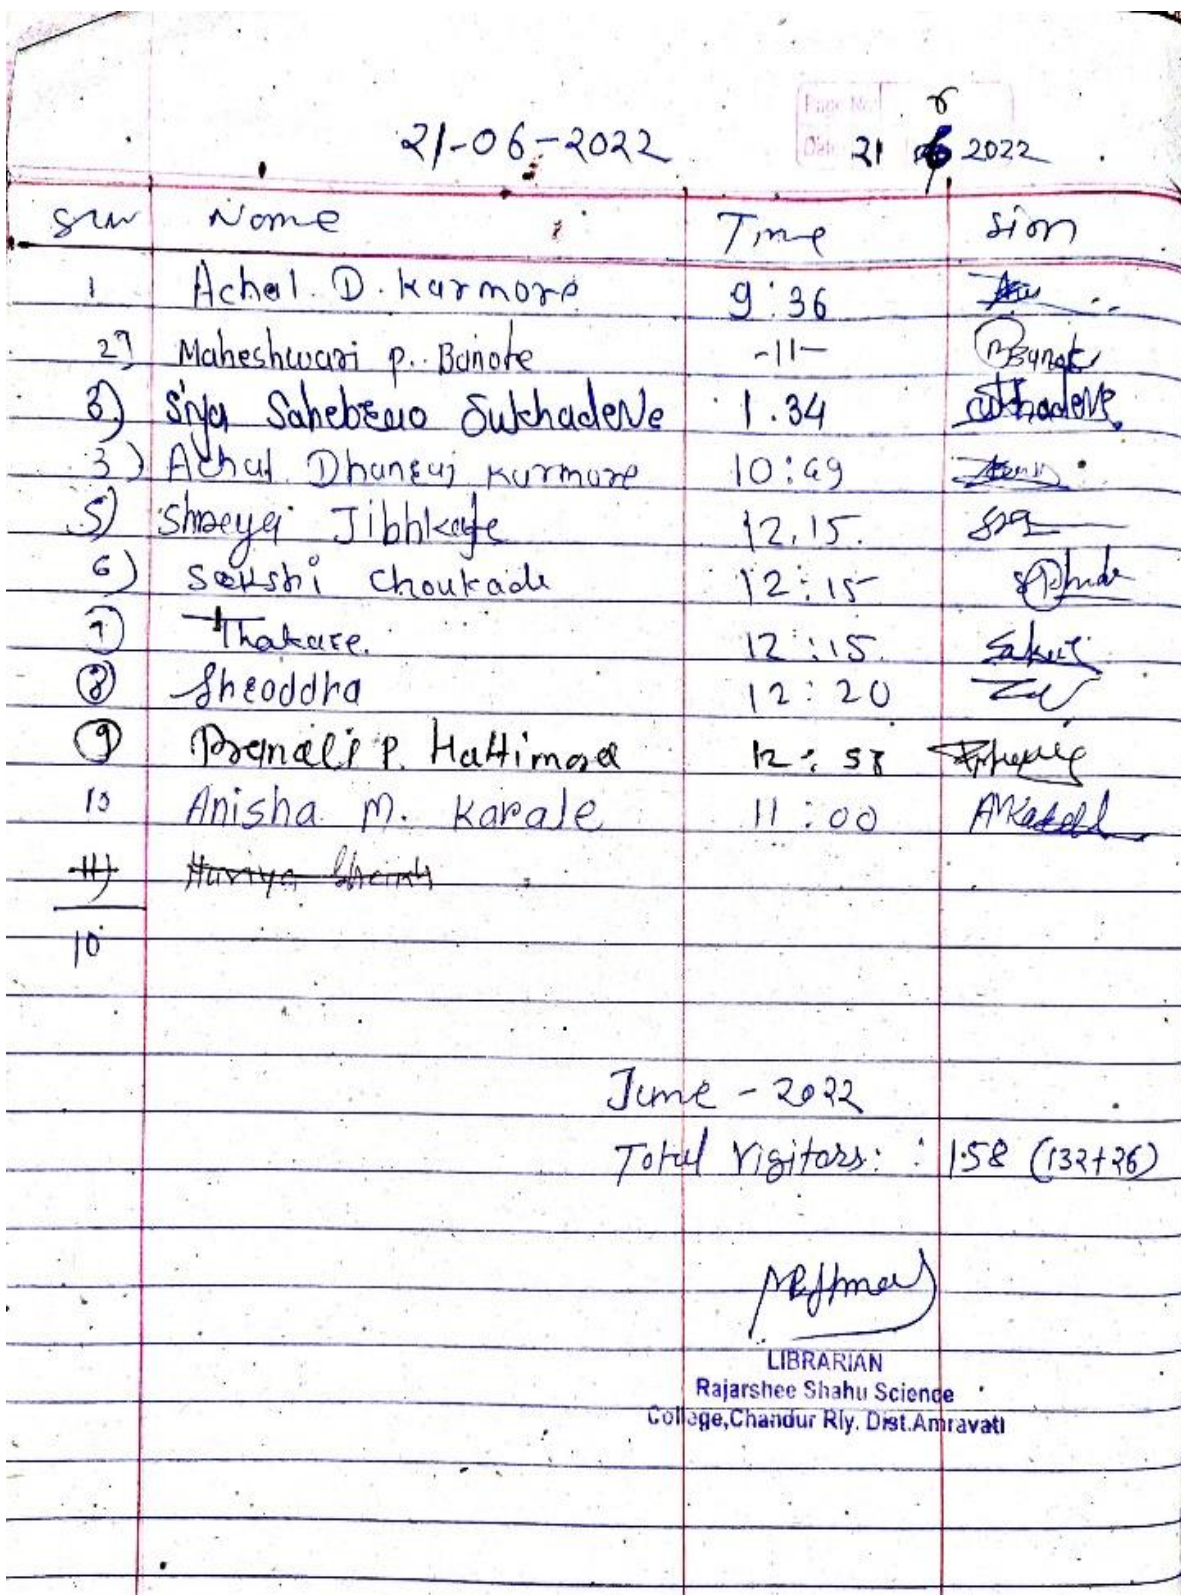 Page No.
21-06-2022
Date 21 6 2022
Nome Time sion
1 Achal. D. Karmore 9:36
2) Maheshwari p. Banote -11-
3) Siya Sahebrao Sukhadeve 1.34 Sukhadeve
3) Achal Dhanraj Kurmore 10:49
5) Shreya Jibhkate 12.15.
6) Sakshi Choukade 12:15
7) Thakare. 12:15. Sakshi
8 Shraddha 12:20
9 Pranali P. Hattimare 12:58
10 Anisha M. Karale 11:00 AMKarale
11) Huriya Sheikh
10
June - 2022
Total Vigitors: : 158 (132+26)
LIBRARIAN
Rajarshee Shahu Science
College,Chandur Rly. Dist.Amravati